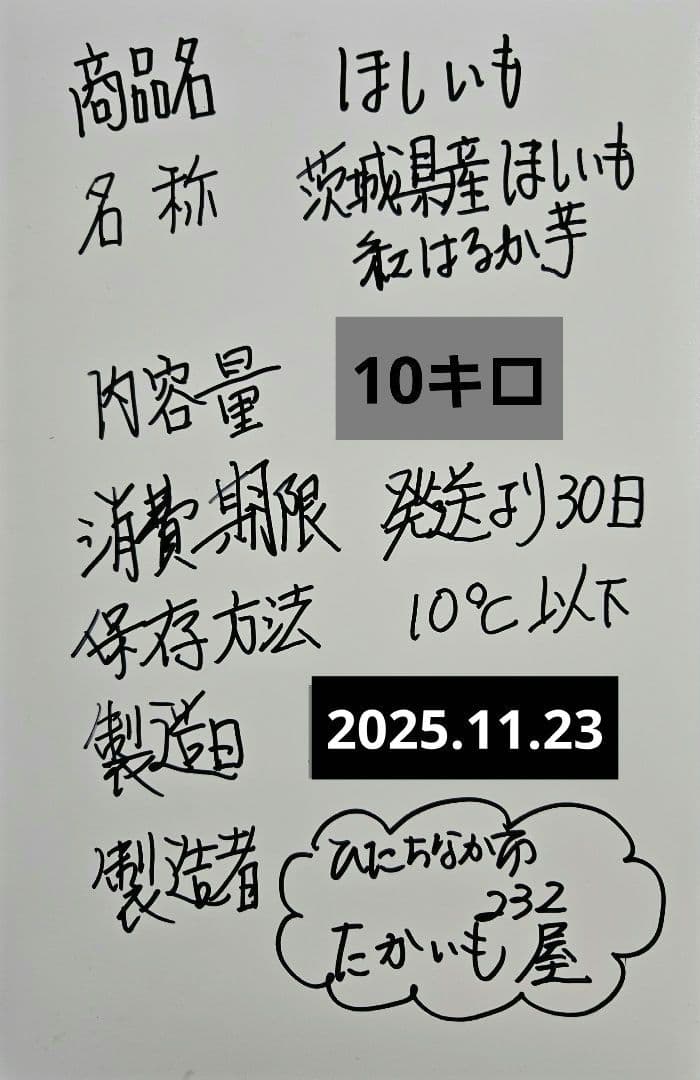 商品名 ほしいも
名称 茨城県産ほしいも
紅はるか芋
内容量 10キロ
消費期限 発送より30日
保存方法 10℃以下
製造日 2025.11.23
製造者 ひたちなか市
232
たかいも屋